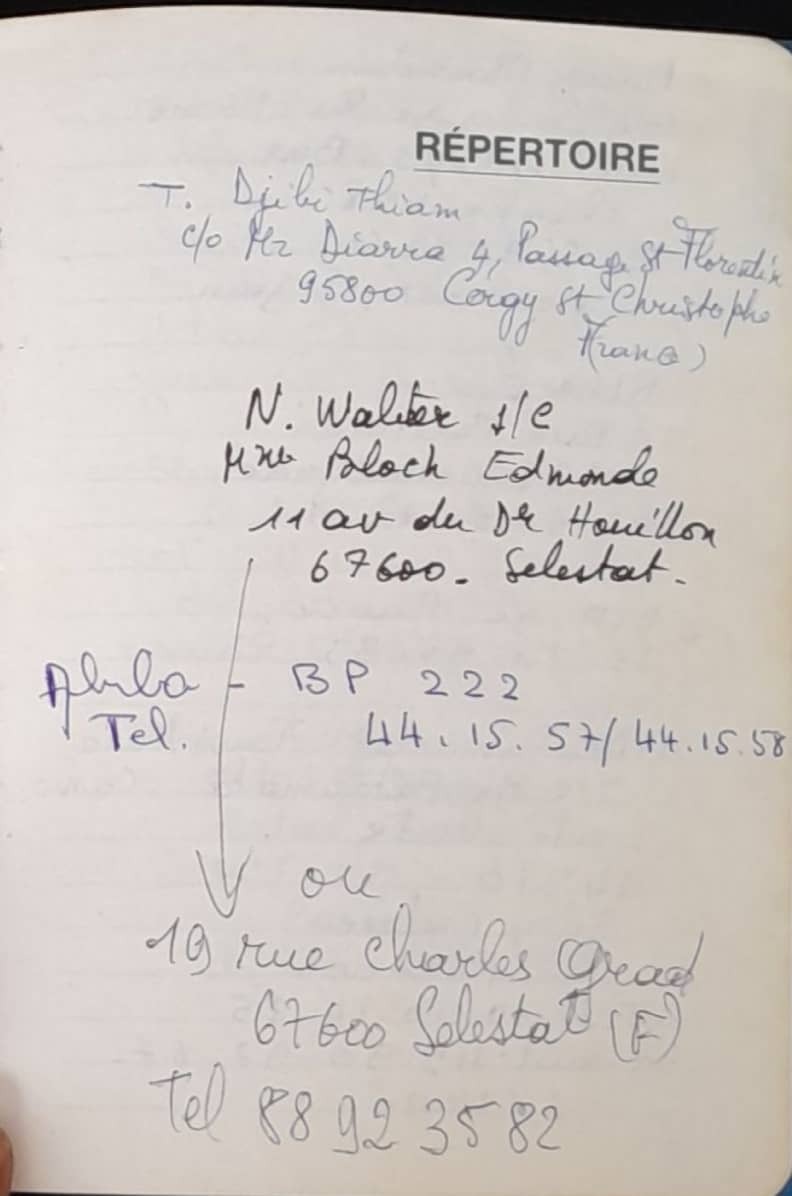 RÉPERTOIRE
T. Djibi Thiam
c/o Mr Diarra 4, Passage St Florentin
95800 Cergy St Christophe
France)
N. Walter s/c
Mme Bloch Edmonde
11 av du Dr Houillon
67600. Selestat.
- BP 222
Tel. 44.15.57/44.15.58
ou
19 rue Charles Grad
67600 Selestat (F)
Tel 88 92 35 82